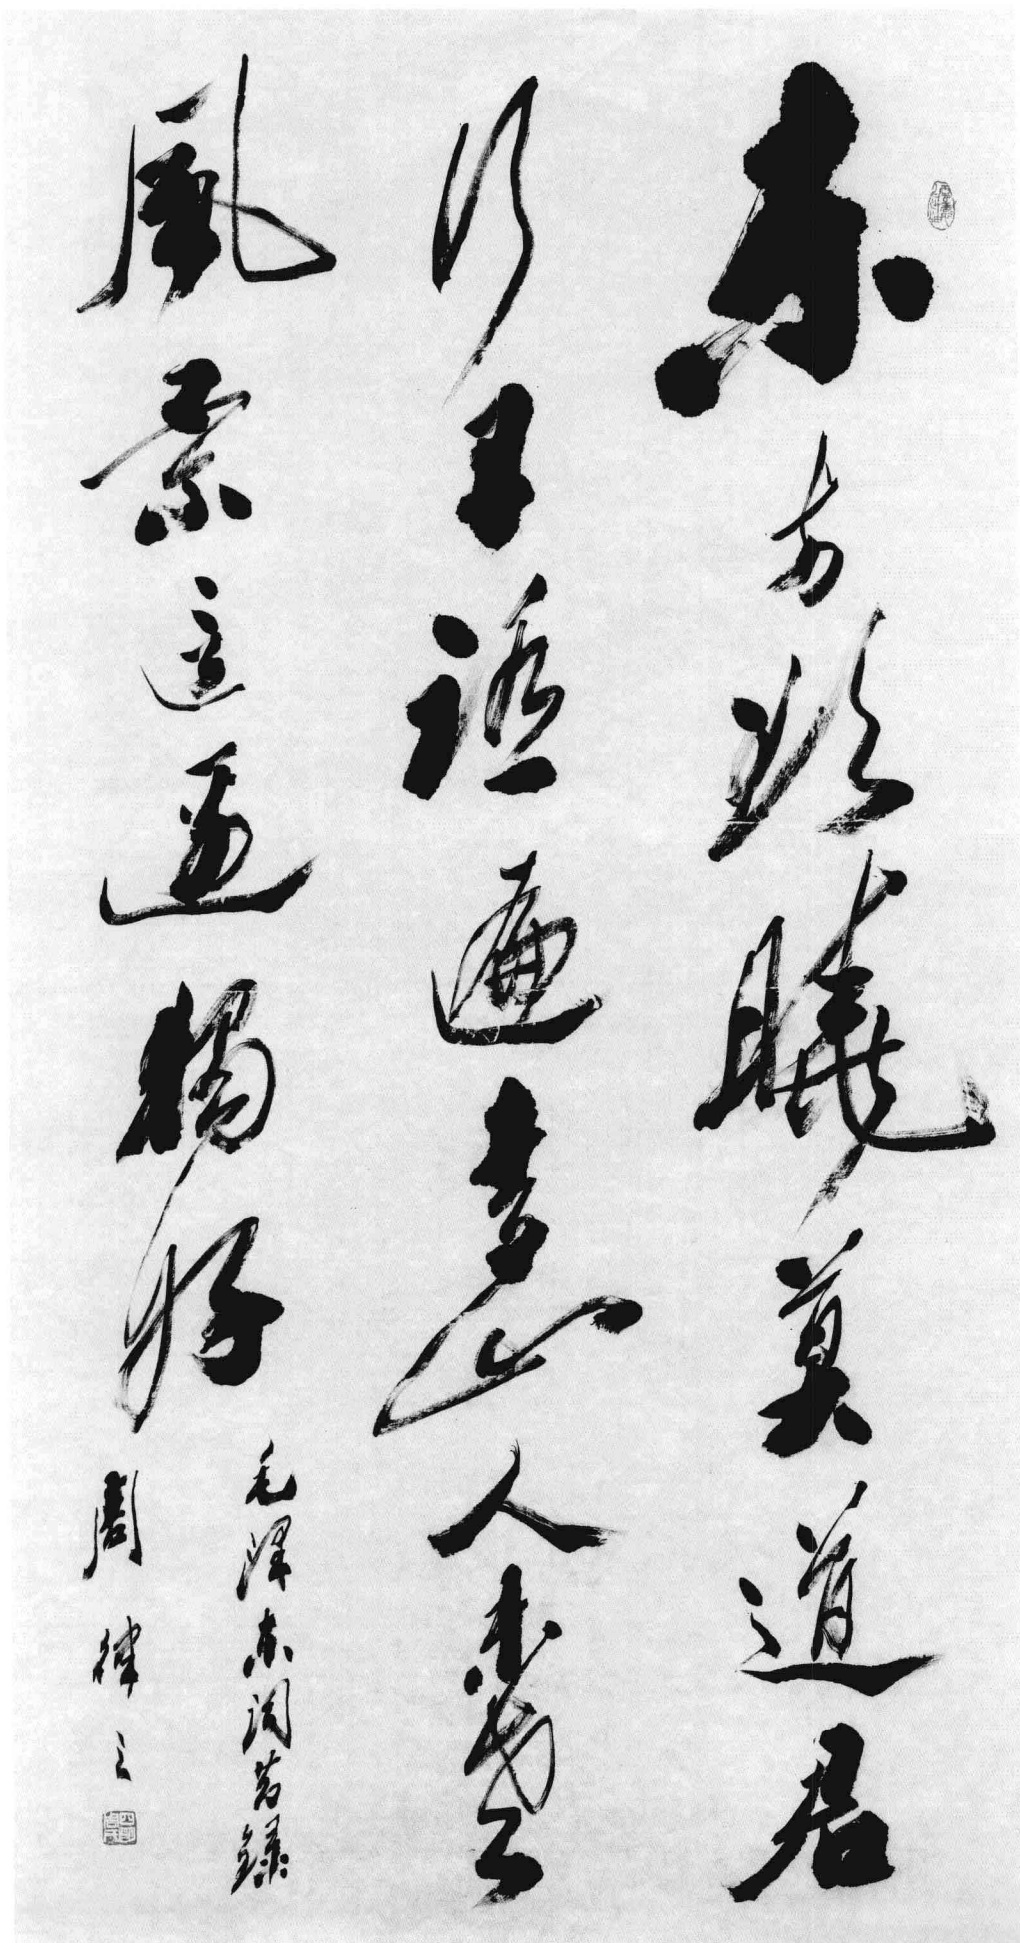 东方欲曉莫道君
行早踏遍青山人未老
風景這邊獨好
毛澤东詞錄
周律之